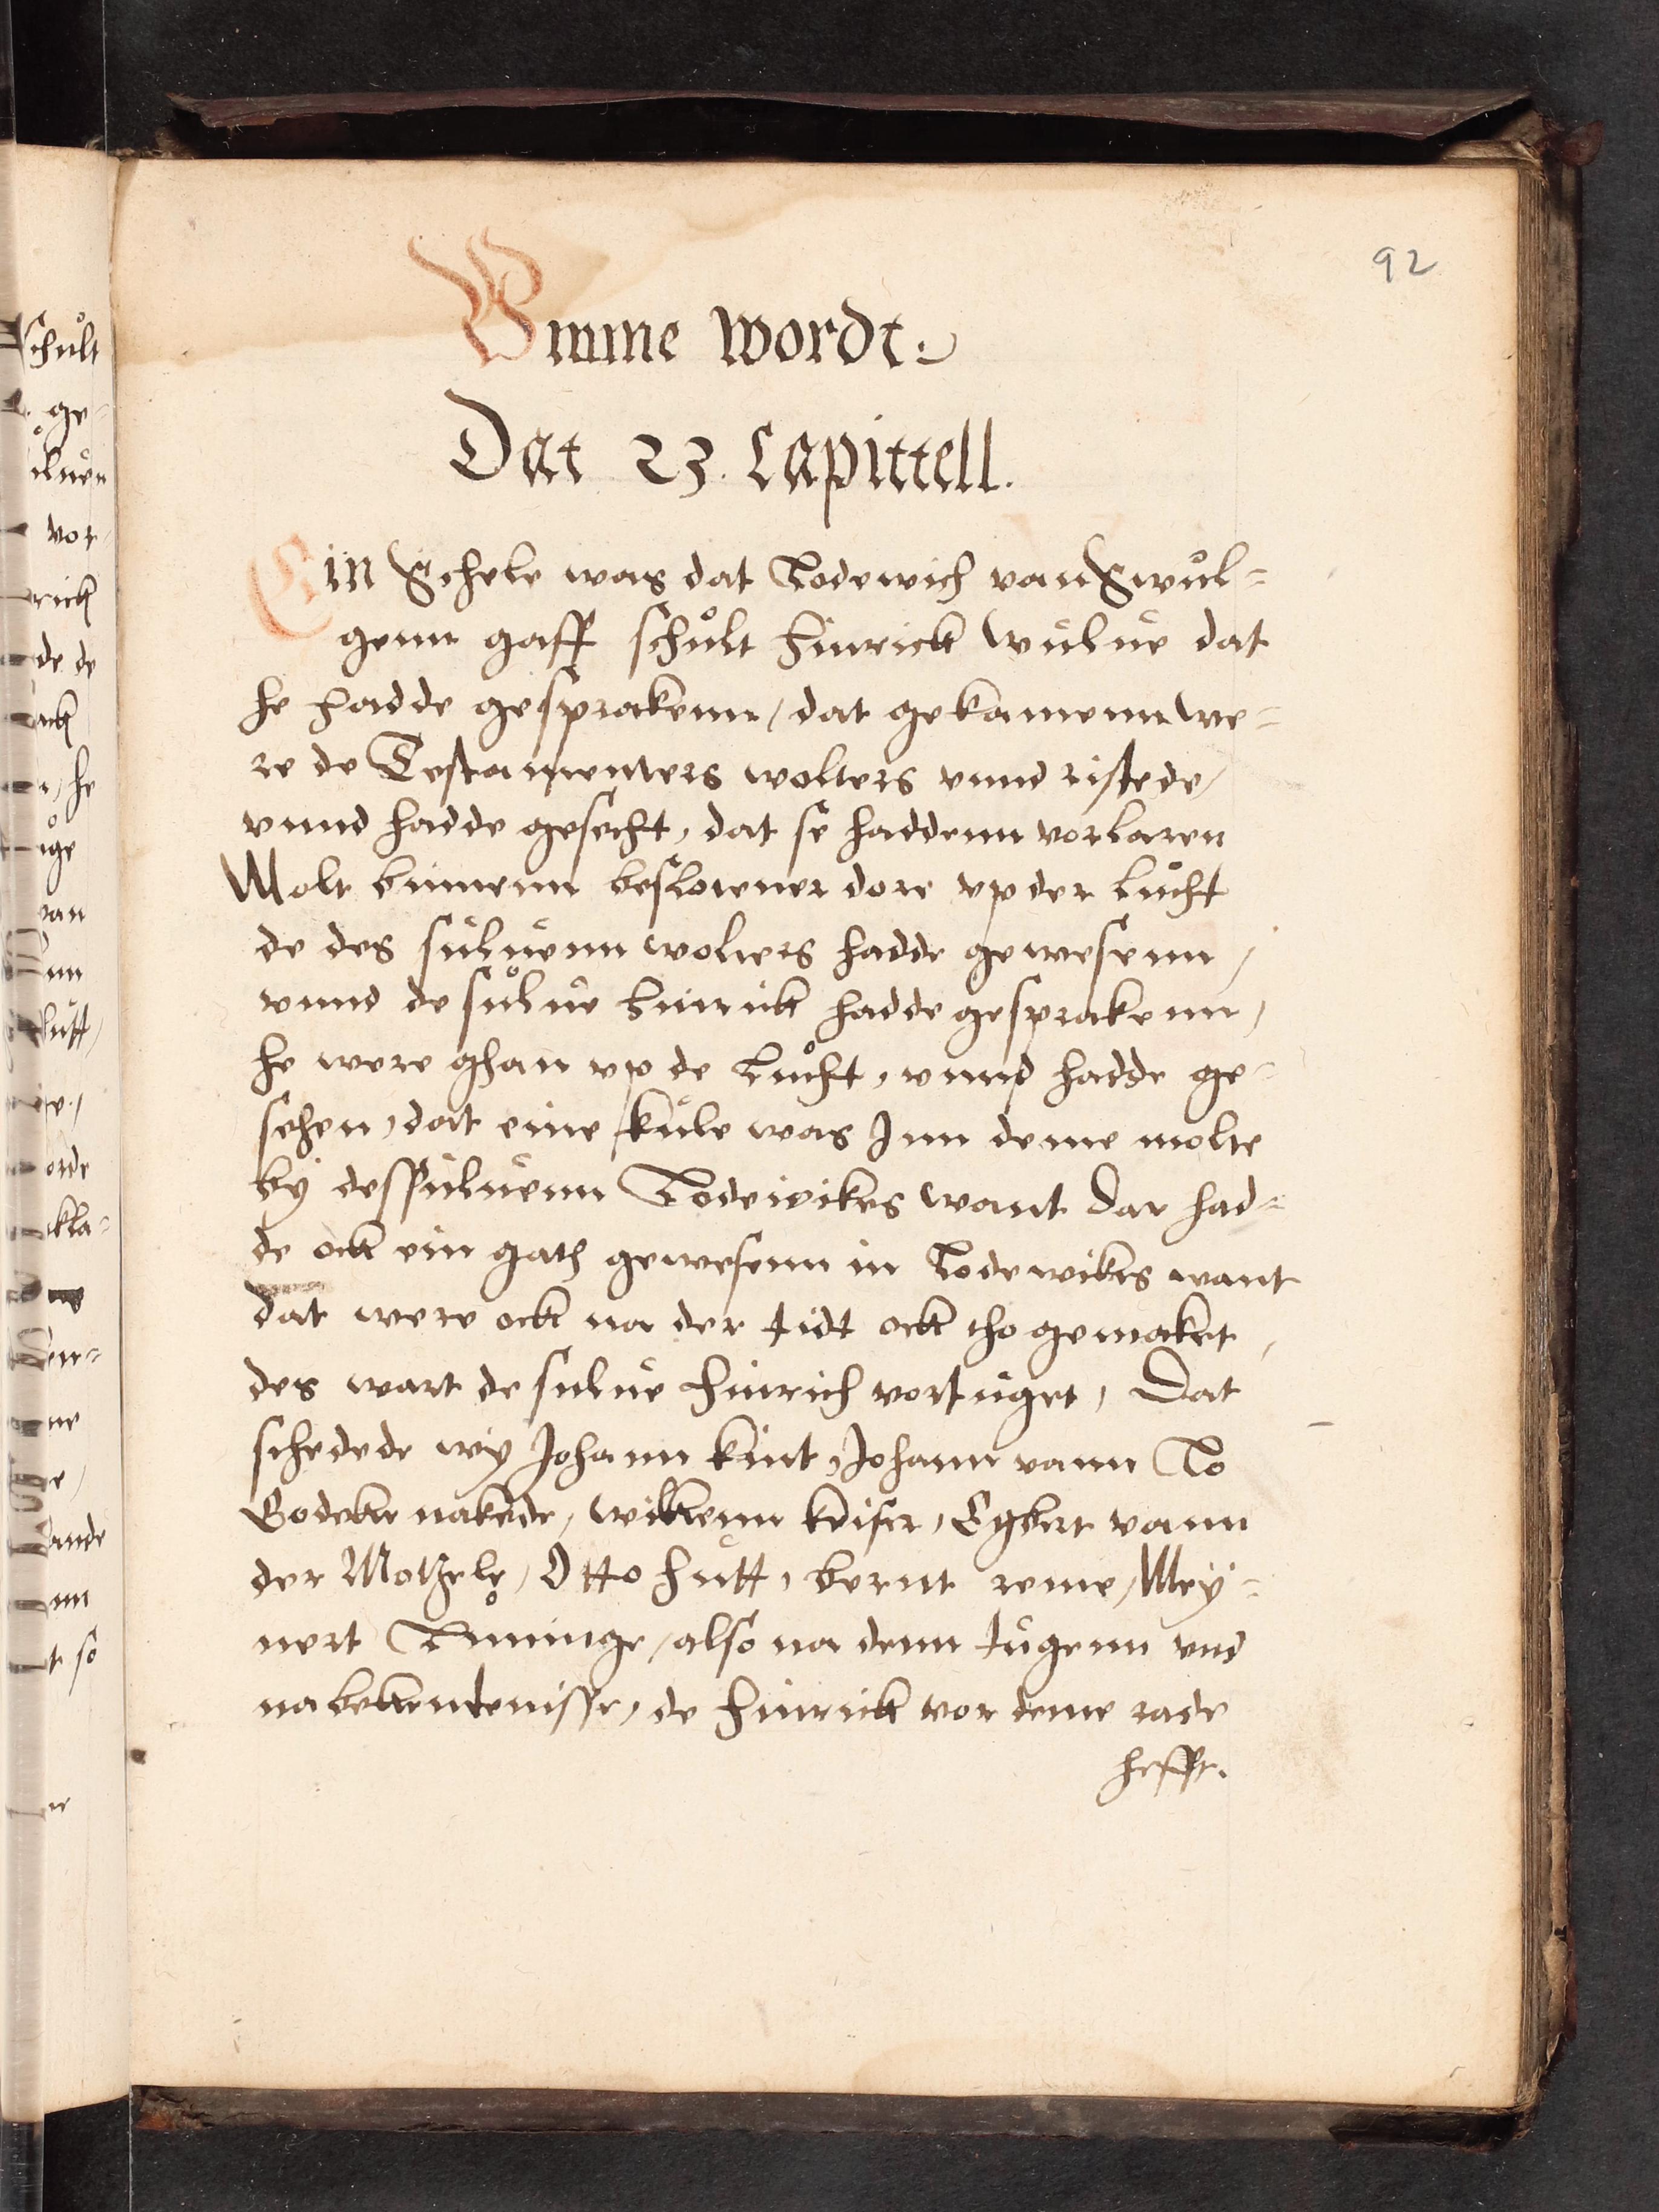 92
Vmme wordt.
Dat 23. Capittell.
Ein Schele was dat Lodewich van Swůl=
genn gaff schůlt Hinrick Wůlůe dat
he hadde gesprakenn / dat gekamenn We=
re de Testamenters wolters vnnd ristede /
vnnd hadde gesecht, dat se haddenn vorlaren
Molt binnenn beslotener dore vp der lůcht
de des sůlůenn wolters hadde gewesenn /
vnnd de sůlůe hinrick hadde gesprakenn,
he were ghan vp de Lůcht, vnnd hadde ge=
sehen, dat eine kůle was Inn deme molte
by dessůlůenn Lodewikes want Dar had=
de ock ein gath gewesenn in Lodewikes want
dat were ock na der tidt ock tho gemaket,
des wart de sůlůe Hinrich vortůget, Dat
schedede wy Johann kint, Johann vann Lo
Godeke nakede, wilkenn keiser, Egbert vann
der Motzele, Otto hůtt, bernt reme, Mey=
nert Lůninge, also na denn tůgenn vnd
na bekentenisse, de Hinrick vor deme rade
hefft.
schůlt
ge=
vor
rick
de de
he
van
kla=
t so